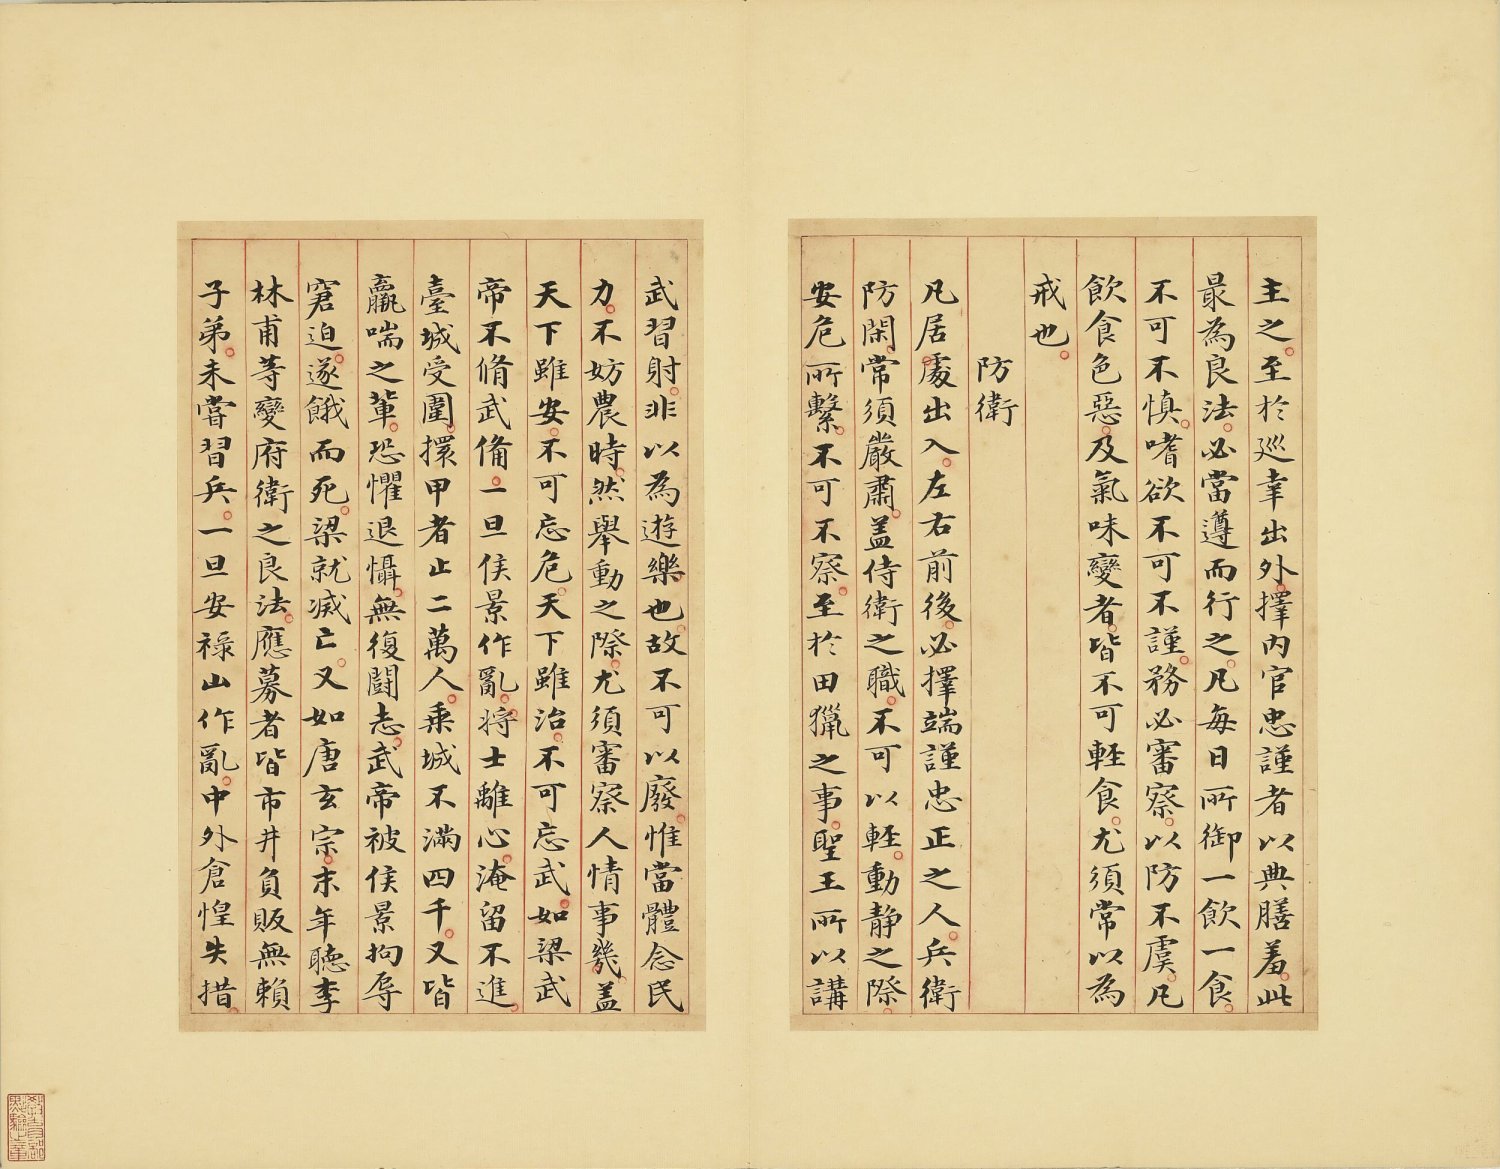 主之至於巡幸出外擇內官忠謹者以典膳羞此
最為良法必當遵而行之凡每日所御一飲一食
不可不慎嗜欲不可不謹務必審察以防不虞凡
飲食色惡及氣味變者皆不可輕食尤須常以為
戒也
防衛
凡居處出入左右前後必擇端謹忠正之人兵衛
防閑常須嚴肅蓋侍衛之職不可以輕動靜之際
安危所繫不可不察至於田獵之事聖王所以講
武習射非以為遊樂也故不可以廢惟當體念民
力不妨農時然舉動之際尤須審察人情事幾蓋
天下雖安不可忘危天下雖治不可忘武如梁武
帝不脩武備一旦侯景作亂將士離心淹留不進
臺城受圍擐甲者止二萬人乘城不滿四千又皆
羸喘之輩恐懼退懾無復鬪志武帝被侯景拘辱
窘迫遂餓而死梁就滅亡又如唐玄宗末年聽李
林甫等變府衛之良法應募者皆市井負販無賴
子弟未嘗習兵一旦安祿山作亂中外倉惶失措